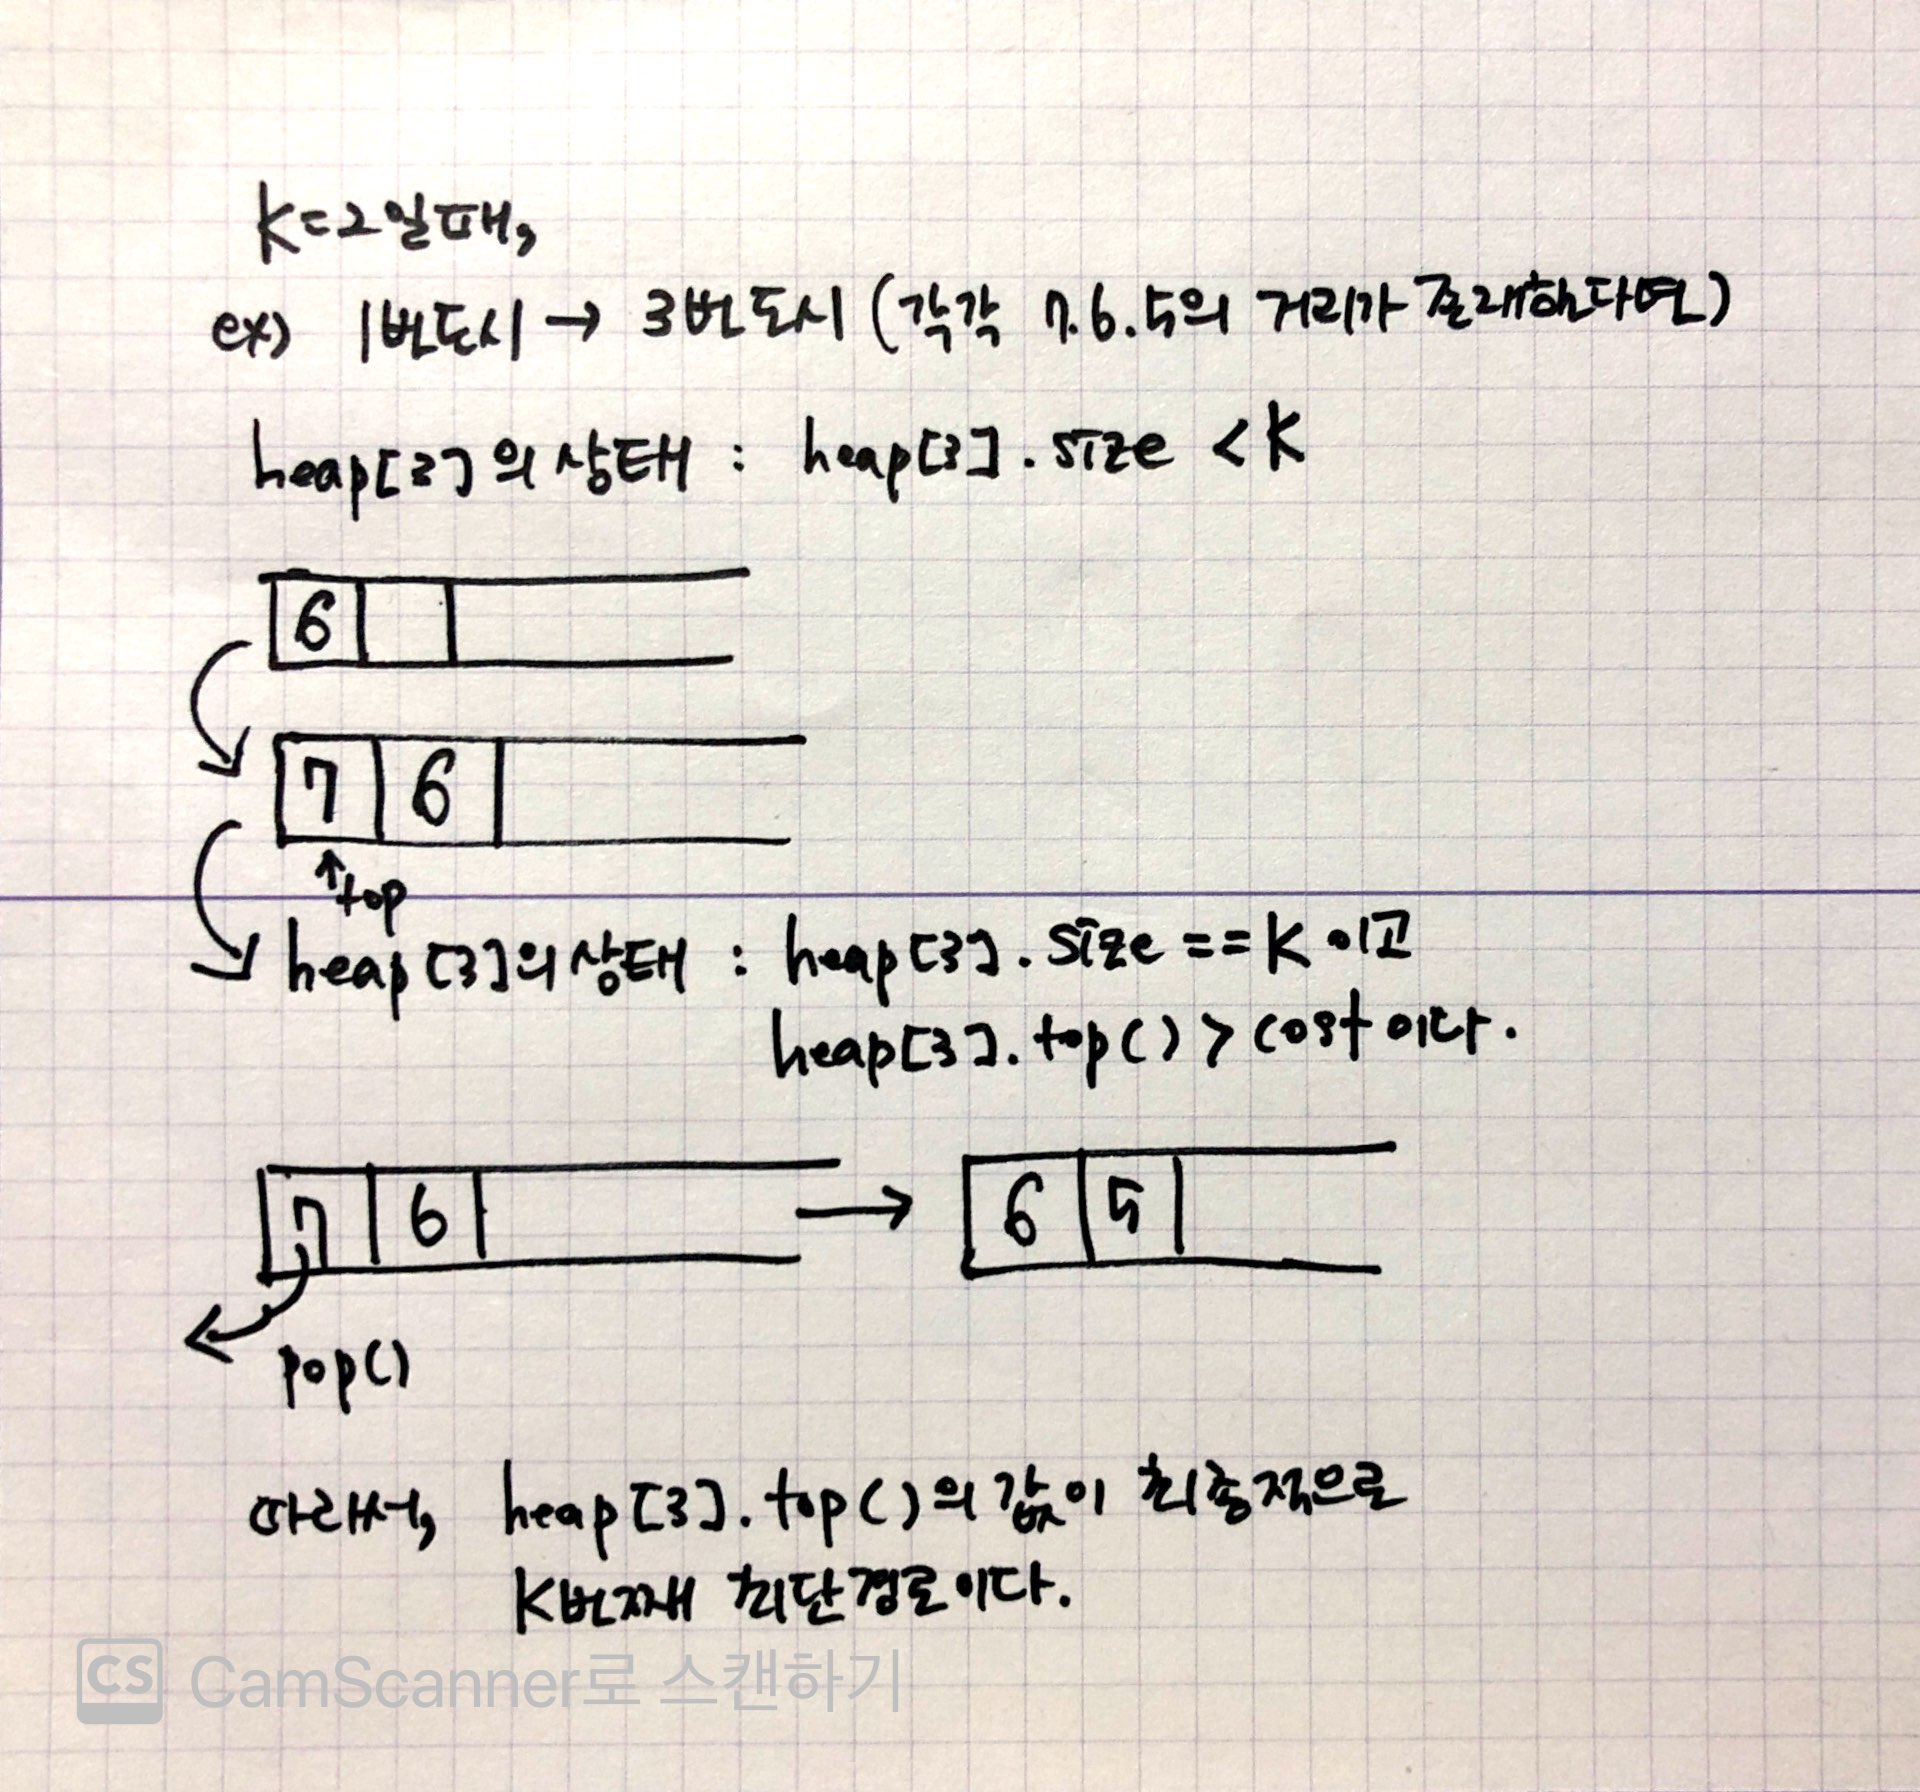 K=2일때,
ex) 1번도시 → 3번도시 (각각 7.6.5의 거리가 존재한다면)
heap[3]의 상태 : heap[3].size < K
6
7 6
↑top
heap[3]의 상태 : heap[3].size == K 이고
heap[3].top() > cost 이다.
7 6 → 6 5
pop()
따라서, heap[3].top()의 값이 최종적으로
K번째 최단경로이다.
CS CamScanner로 스캔하기